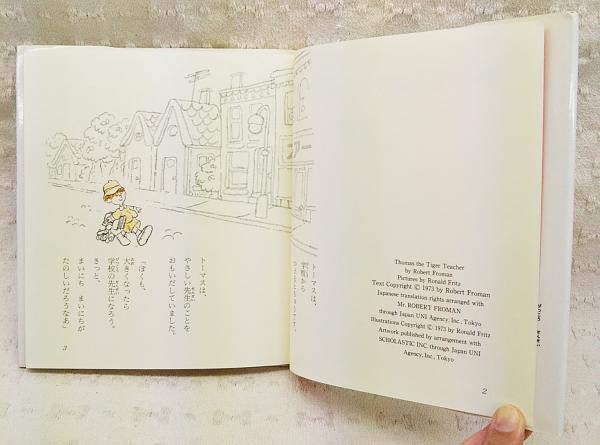 Thomas the Tiger Teacher
by Robert Froman
Pictures by Ronald Fritz
Text Copyright © 1973 by Robert Froman
Japanese translation rights arranged with
Mr. ROBERT FROMAN
through Japan UNI Agency, Inc., Tokyo
Illustrations Copyright © 1973 by Ronald Fritz
Artwork published by arrangement with
SCHOLASTIC INC. through Japan UNI
Agency, Inc., Tokyo
2
トーマスは、
学校から
トーマスは、
やさしい先生のことを
おもいだしていました。
「ぼくも、
大きくなったら
学校の先生になろう。
きっと、
まいにち まいにちが
たのしいだろうなあ」
3